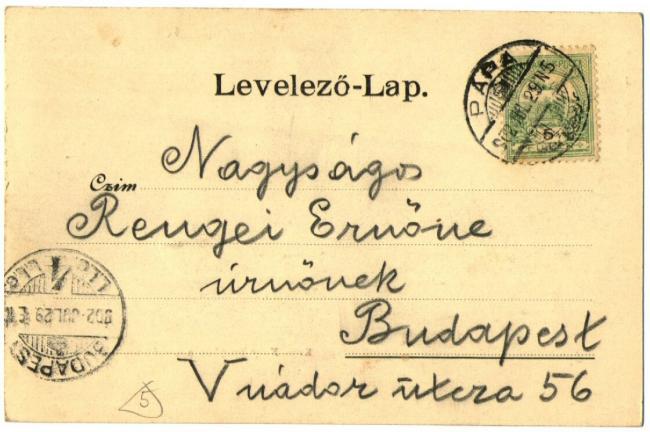 Levelező-Lap.
PÁPA
902 JUL. 29 N5
5
Czim Nagyságos
Rengei Ernőne
úrnőnek
Budapest
V nádor utcza 56
BUDAPEST
902 JUL. 29
5